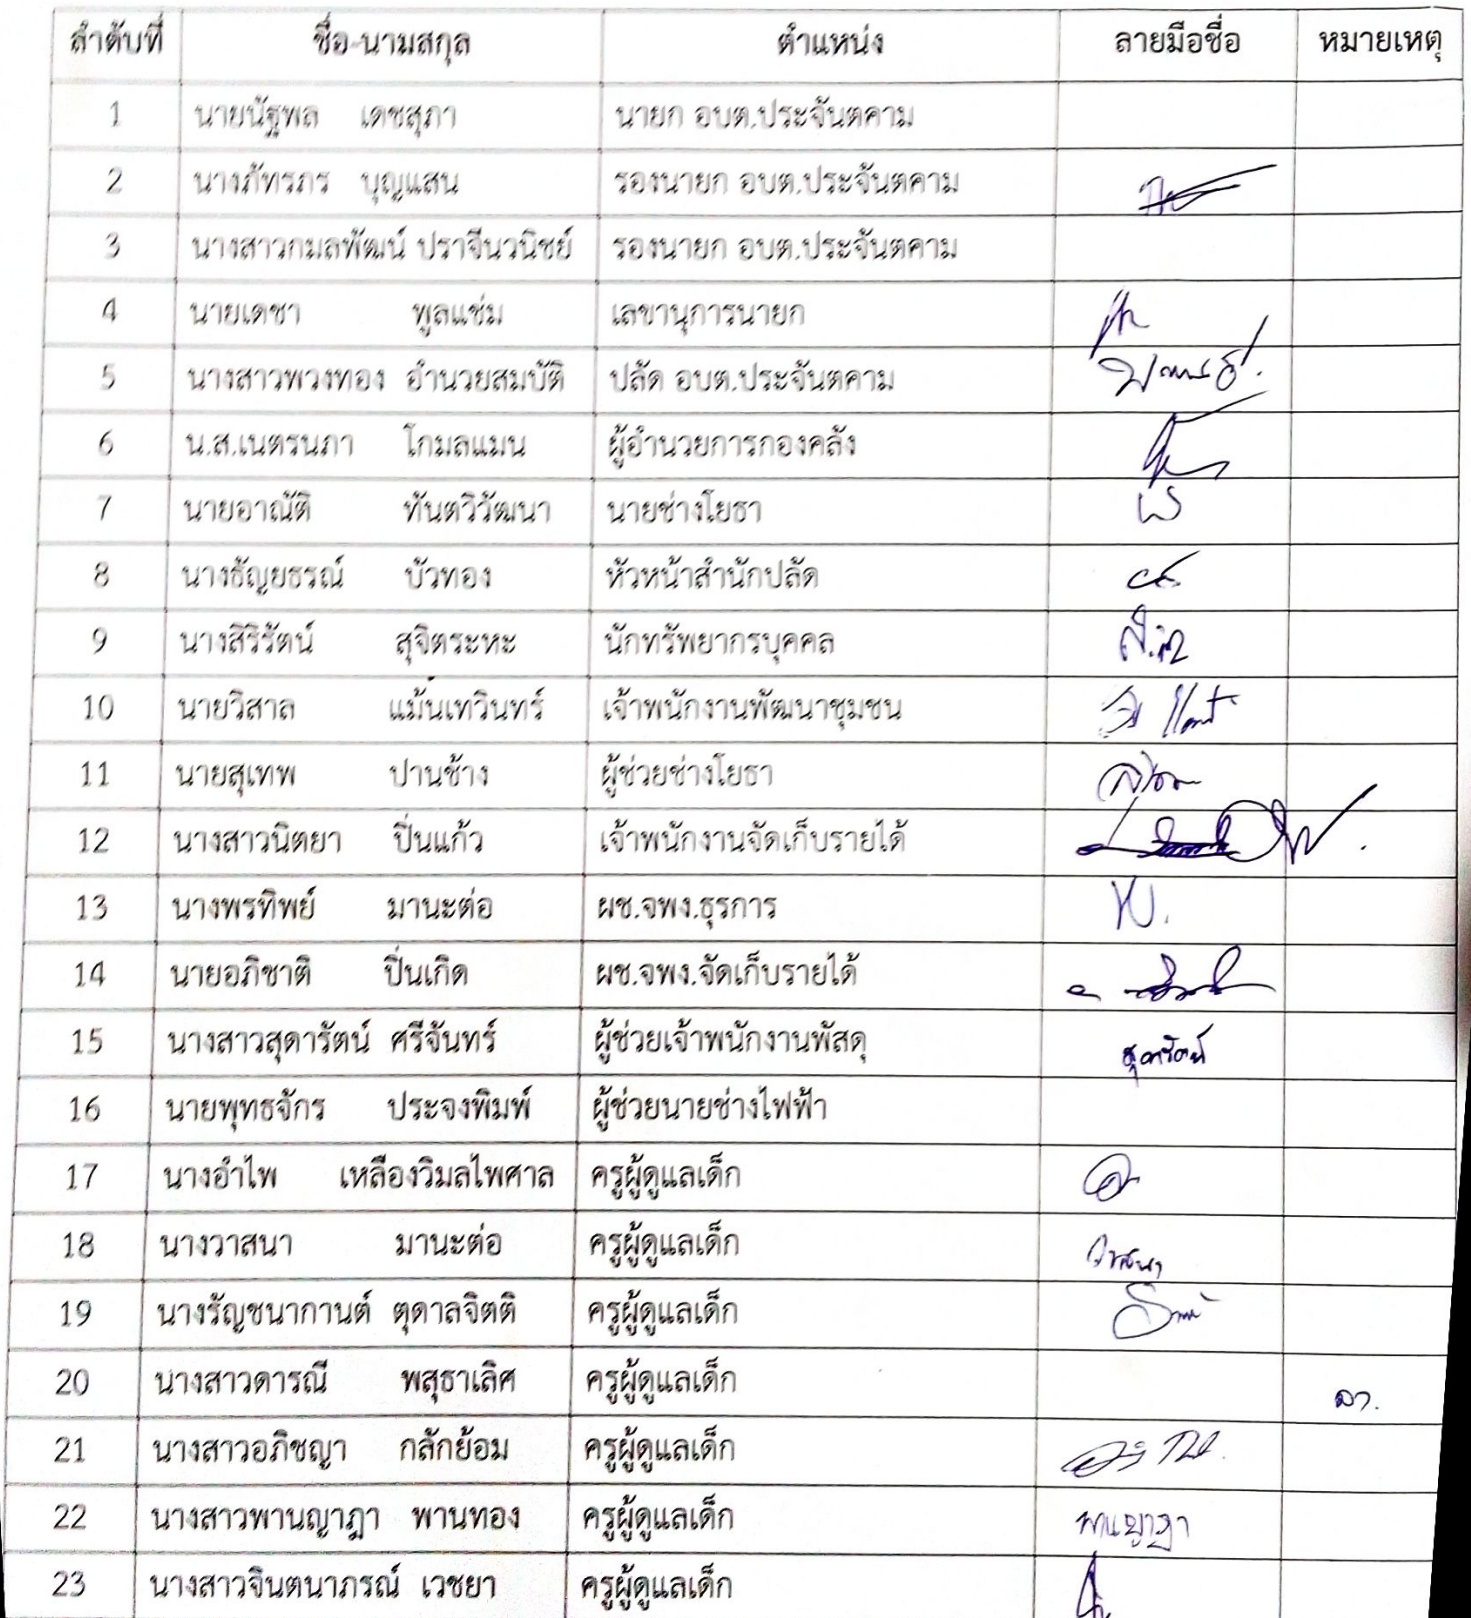 ลำดับที่ ชื่อ-นามสกุล ตำแหน่ง ลายมือชื่อ หมายเหตุ
1 นายนัฐพล เดชสุภา นายก อบต.ประจันตคาม
2 นางภัทรภร บุญแสน รองนายก อบต.ประจันตคาม
3 นางสาวกมลพัฒน์ ปราจีนวนิชย์ รองนายก อบต.ประจันตคาม
4 นายเดชา พูลแช่ม เลขานุการนายก
5 นางสาวพวงทอง อำนวยสมบัติ ปลัด อบต.ประจันตคาม
6 น.ส.เนตรนภา โกมลแมน ผู้อำนวยการกองคลัง
7 นายอาณัติ ทันตวิวัฒนา นายช่างโยธา
8 นางธัญยธรณ์ บัวทอง หัวหน้าสำนักปลัด
9 นางสิริรัตน์ สุจิตระหะ นักทรัพยากรบุคคล
10 นายวิสาล แม้นเทวินทร์ เจ้าพนักงานพัฒนาชุมชน
11 นายสุเทพ ปานช้าง ผู้ช่วยช่างโยธา
12 นางสาวนิตยา ปิ่นแก้ว เจ้าพนักงานจัดเก็บรายได้
13 นางพรทิพย์ มานะต่อ ผช.จพง.ธุรการ
14 นายอภิชาติ ปิ่นเกิด ผช.จพง.จัดเก็บรายได้
15 นางสาวสุดารัตน์ ศรีจันทร์ ผู้ช่วยเจ้าพนักงานพัสดุ สุดารัตน์
16 นายพุทธจักร ประจงพิมพ์ ผู้ช่วยนายช่างไฟฟ้า
17 นางอำไพ เหลืองวิมลไพศาล ครูผู้ดูแลเด็ก
18 นางวาสนา มานะต่อ ครูผู้ดูแลเด็ก วาสนา
19 นางรัญชนากานต์ ตุดาลจิตติ ครูผู้ดูแลเด็ก
20 นางสาวดารณี พสุธาเลิศ ครูผู้ดูแลเด็ก ลา.
21 นางสาวอภิชญา กลักย้อม ครูผู้ดูแลเด็ก
22 นางสาวพานญาฎา พานทอง ครูผู้ดูแลเด็ก พานญาฎา
23 นางสาวจินตนาภรณ์ เวชยา ครูผู้ดูแลเด็ก